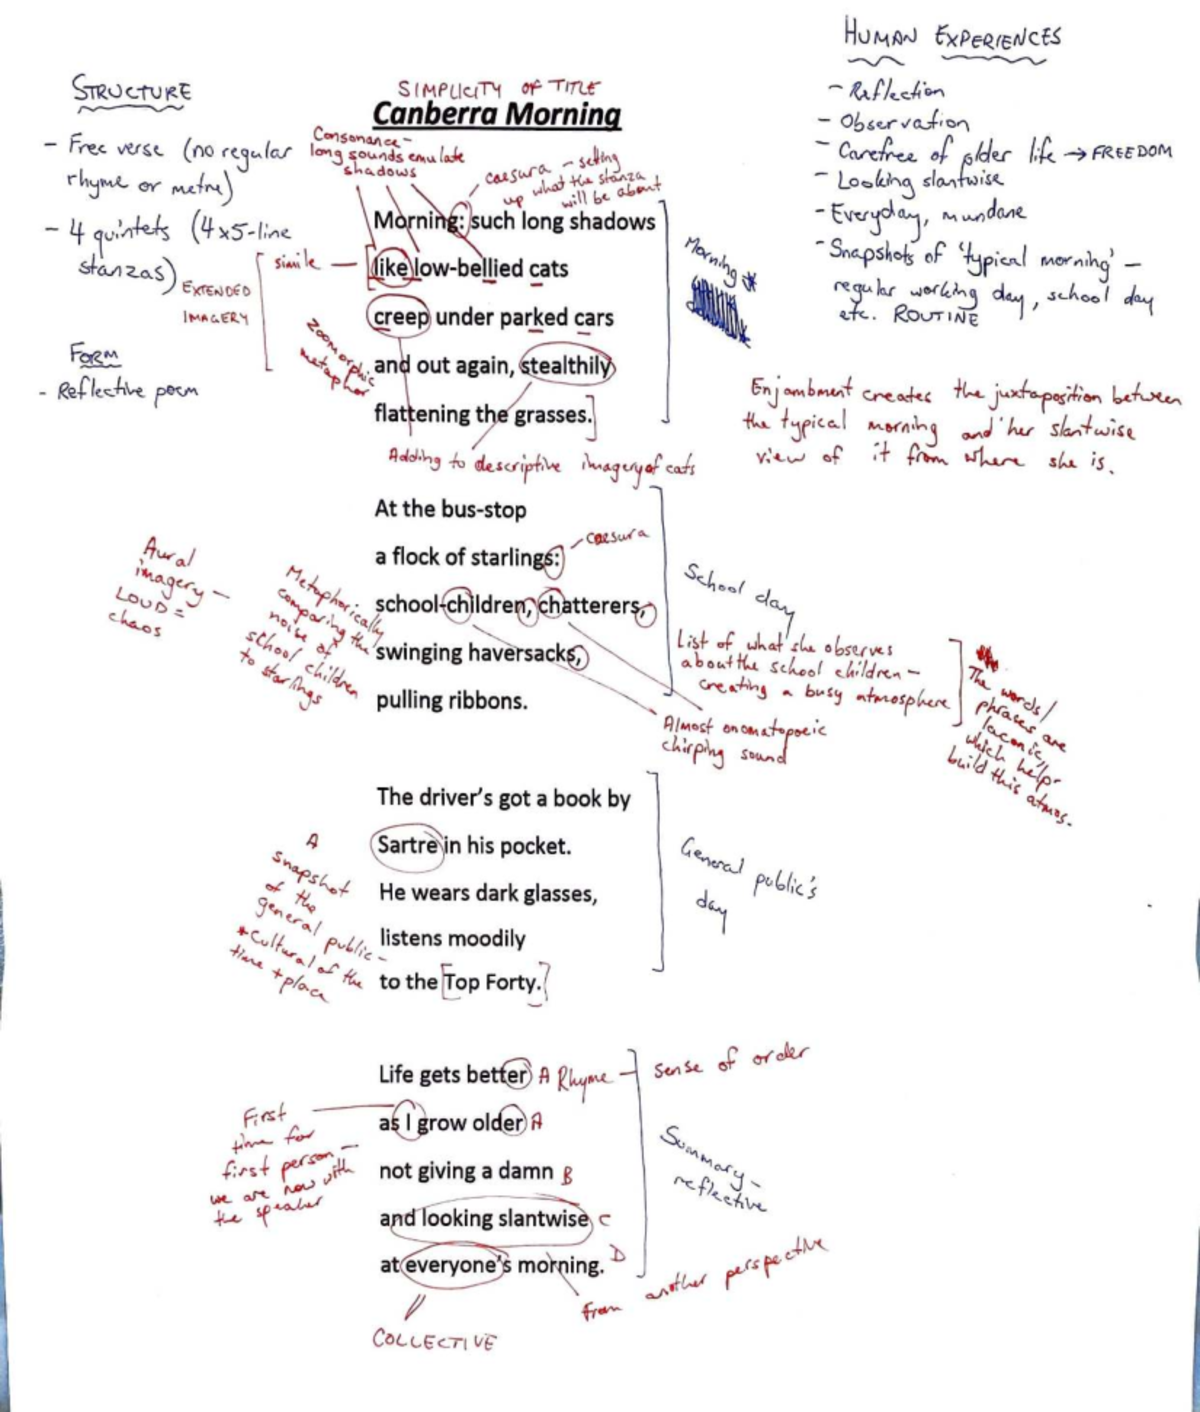 HUMAN EXPERIENCES
- Reflection
- Observation
- Carefree of older life → FREEDOM
- Looking slantwise
- Everyday, mundane
- Snapshots of 'typical morning' -
regular working day, school day
etc. ROUTINE
STRUCTURE
- Free verse (no regular
rhyme or metre)
- 4 quintets (4x5-line
stanzas)
FORM
- Reflective poem
SIMPLICITY OF TITLE
Canberra Morning
Consonance -
long sounds emulate
shadows
caesura - setting
up what the stanza
will be about
Morning: such long shadows
like low-bellied cats
creep under parked cars
and out again, stealthily
flattening the grasses.
simile
EXTENDED
IMAGERY
Zoomorphic
metaphor
Adding to descriptive imagery of cats
Morning *
Enjambment creates the juxtaposition between
the typical morning and her slantwise
view of it from where she is.
At the bus-stop
a flock of starlings:
school-children, chatterers,
swinging haversacks,
pulling ribbons.
caesura
Aural
imagery -
LOUD =
chaos
Metaphorically
comparing the
noise of
school children
to starlings
School day
List of what she observes
about the school children -
creating a busy atmosphere
The words/
phrases are
laconic,
which help
build this atmos.
Almost onomatopoeic
chirping sound
The driver's got a book by
Sartre in his pocket.
He wears dark glasses,
listens moodily
to the Top Forty.
A
snapshot
of the
general public -
* Cultural of the
time + place
General public's
day
Life gets better A Rhyme - sense of order
as I grow older A
not giving a damn B
and looking slantwise C
at everyone's morning. D
First
time for
first person -
we are now with
the speaker
Summary -
reflective
from another perspective
COLLECTIVE